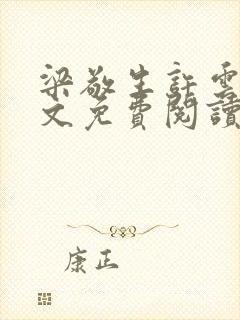 梁敬生許雲
文免費閱讀
康正